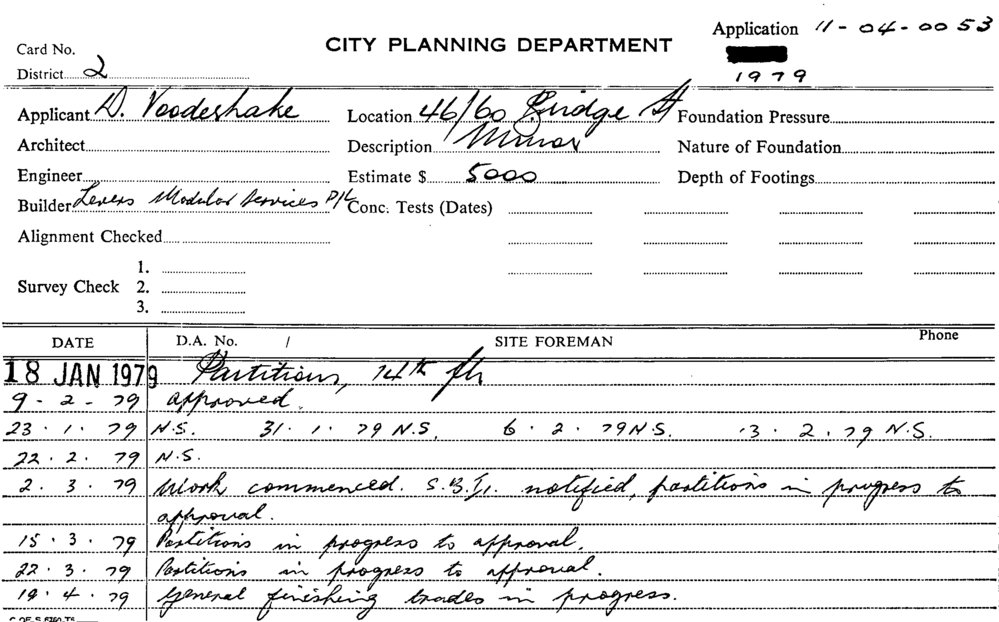 Application 11-04-0053
Card No. CITY PLANNING DEPARTMENT
District 2 1979
Applicant D. Voodeshake Location 46/60 Bridge St Foundation Pressure
Architect Description Minor Nature of Foundation
Engineer Estimate $ 5000 Depth of Footings
Builder Levers Modular Services P/L Conc. Tests (Dates)
Alignment Checked
1.
Survey Check 2.
3.
DATE D.A. No. / SITE FOREMAN Phone
18 JAN 1979 Partitions, 14th flr
9-2-79 approved.
23.1.79 N.S. 31.1.79 N.S. 6.2.79 N.S. 13.2.79 N.S.
22.2.79 N.S.
2.3.79 Work commenced. notified, partitions in progress to
approval.
15.3.79 Partitions in progress to approval.
22.3.79 Partitions in progress to approval.
19.4.79 General finishing trades in progress.